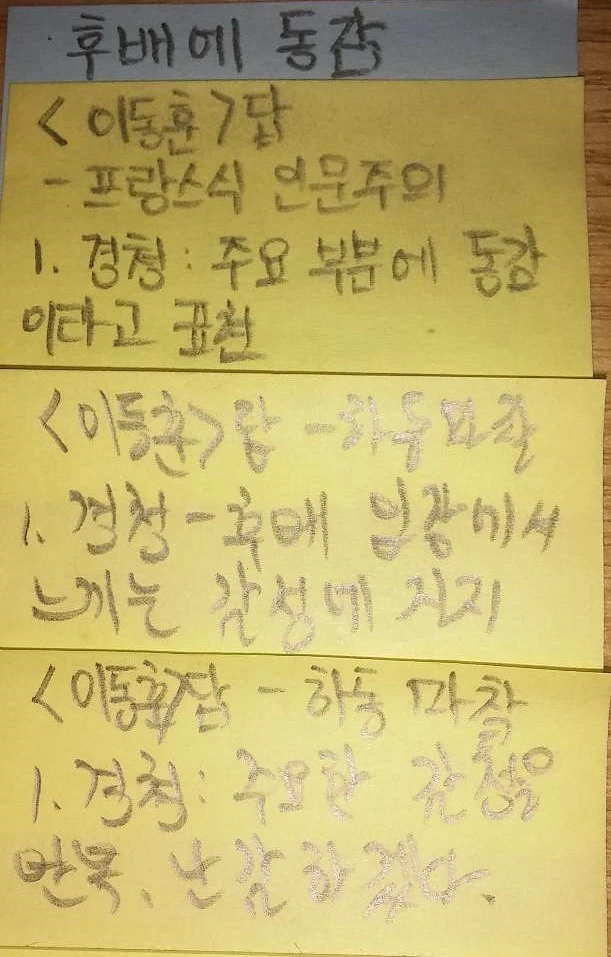 · 후배에 동감
<이동훈>답
- 프랑스식 인문주의
1. 경청: 주요 부분에 동감
이라고 표현
<이동훈>답 - 하동마찰
1. 경청 - 후배 입장에서
느끼는 감정에 지지
<이동훈>답 - 하동 마찰
1. 경청: 주요한 감정을
반복. 난감하겠다.